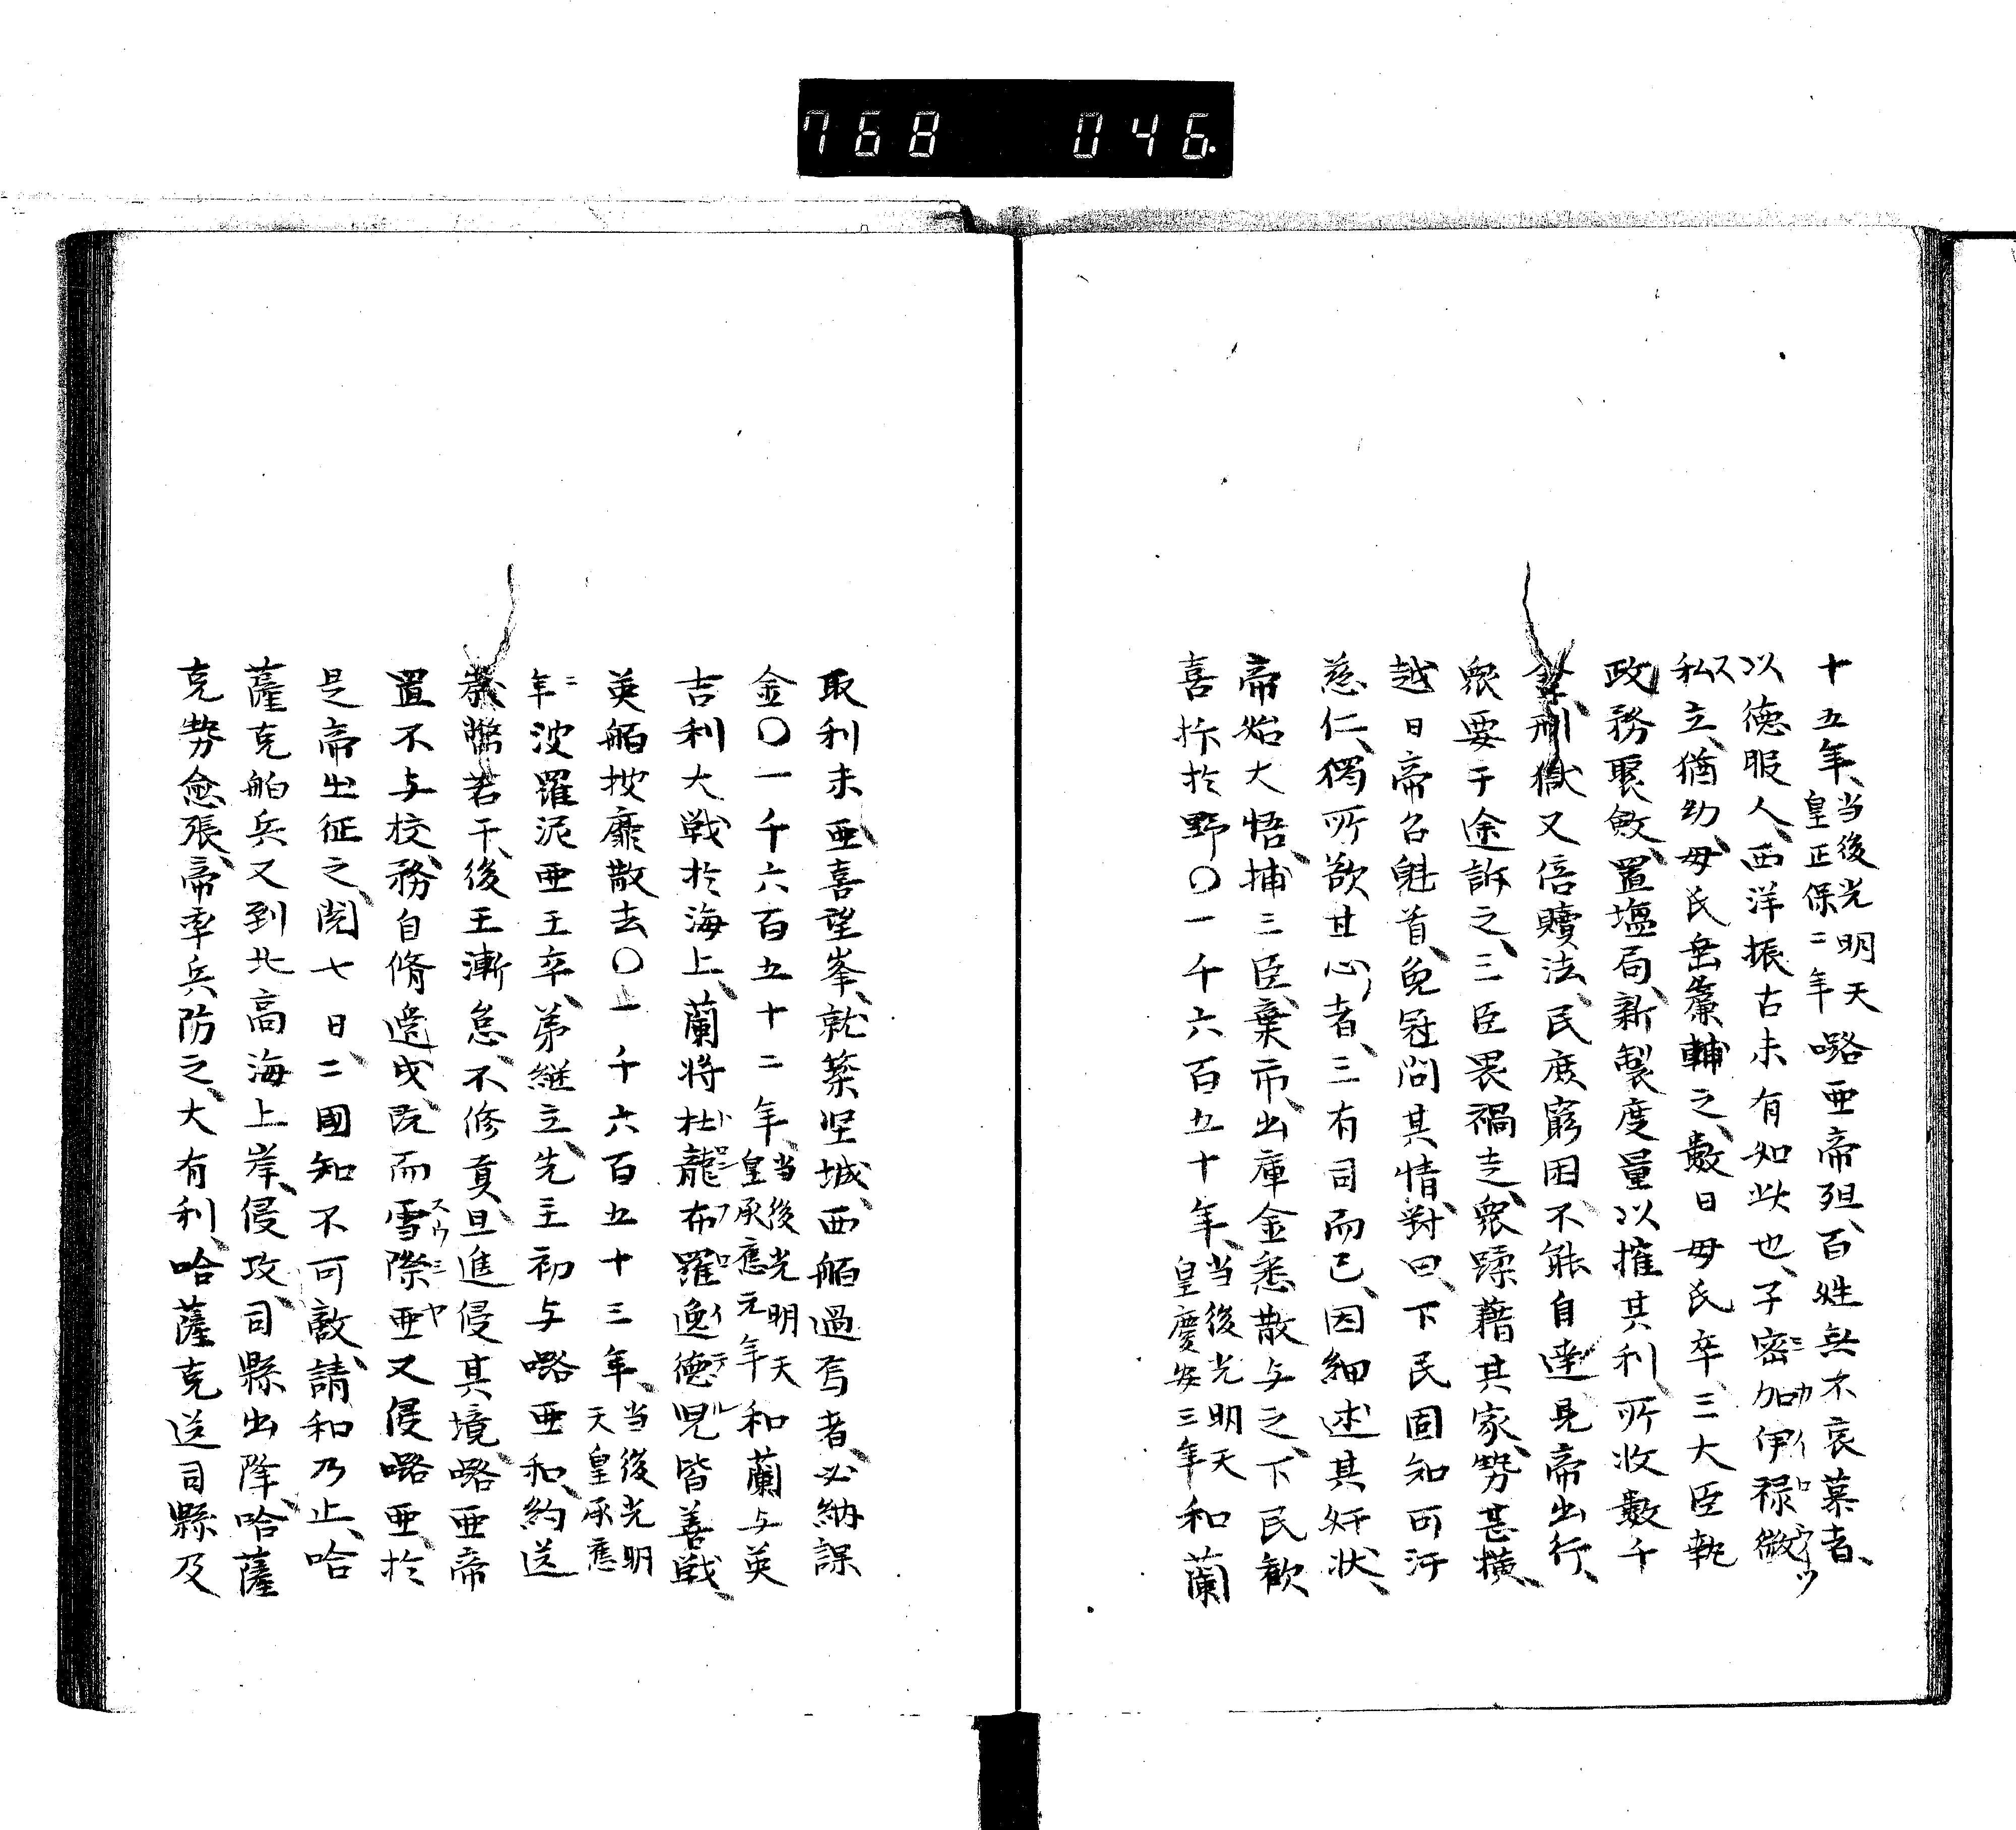 768 046.
十五年、当後光明天皇正保二年㗉亜帝殂、百姓無不哀慕者、
以徳服人、西洋振古未有如此也、子密加伊禄微ミカイロウイツ
私ス立、猶幼、母氏垂簾輔之、數日母氏卒、三大臣執
政務聚斂、置塩局、新製度量以搉其利、所收數千
刑獄又倍贖法、民庶窮困不能自達、見帝出行、
衆要于途訴之、三臣畏禍走、衆蹂藉其家、勢甚横、
越日帝召魁首、免冠問其情、對曰、下民固知可汗
慈仁、獨所欲甘心者、三有司而已、因細述其奸状、
帝始大悟、捕三臣、棄市、出庫金悉散与之、下民歓
喜抃於野〇一千六百五十年、当後光明天皇慶安三年和蘭
取利未亜喜望峯、就築堅城、西舶過焉者、必納課
金〇一千六百五十二年、当後光明天皇承應元年和蘭与英
吉利大戦於海上、蘭将杜龍布羅逸徳児皆善戦、
英舶披靡散去〇一千六百五十三年、当後光明天皇承應
二年波羅泥亜王卒、弟継立、先王初与㗉亜和、約送
歳幣若干、後王漸怠、不修貢、且進侵其境、㗉亜帝
置不与校、務自脩邊戍、既而雪際亜スウミヤ又侵㗉亜、於
是帝出征之、閲七日、二國知不可敵、請和乃止、哈
薩克舶兵又到北高海上岸、侵攻、司縣出降、哈薩
克勢愈張、帝率兵防之、大有利、哈薩克送司縣及